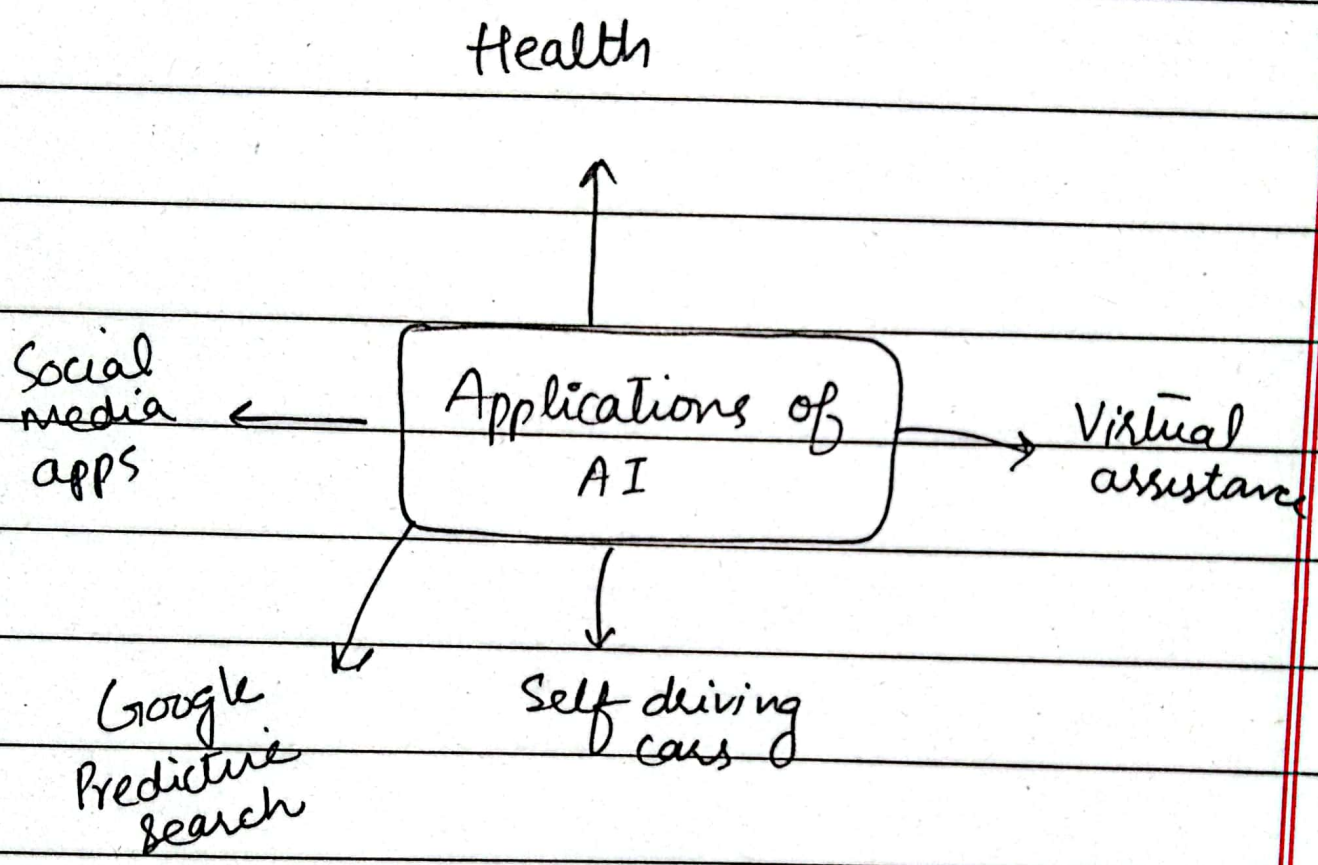 Health
Social
media
apps
Applications of
AI
Virtual
assistance
Google
Predictive
search
Self driving
cars